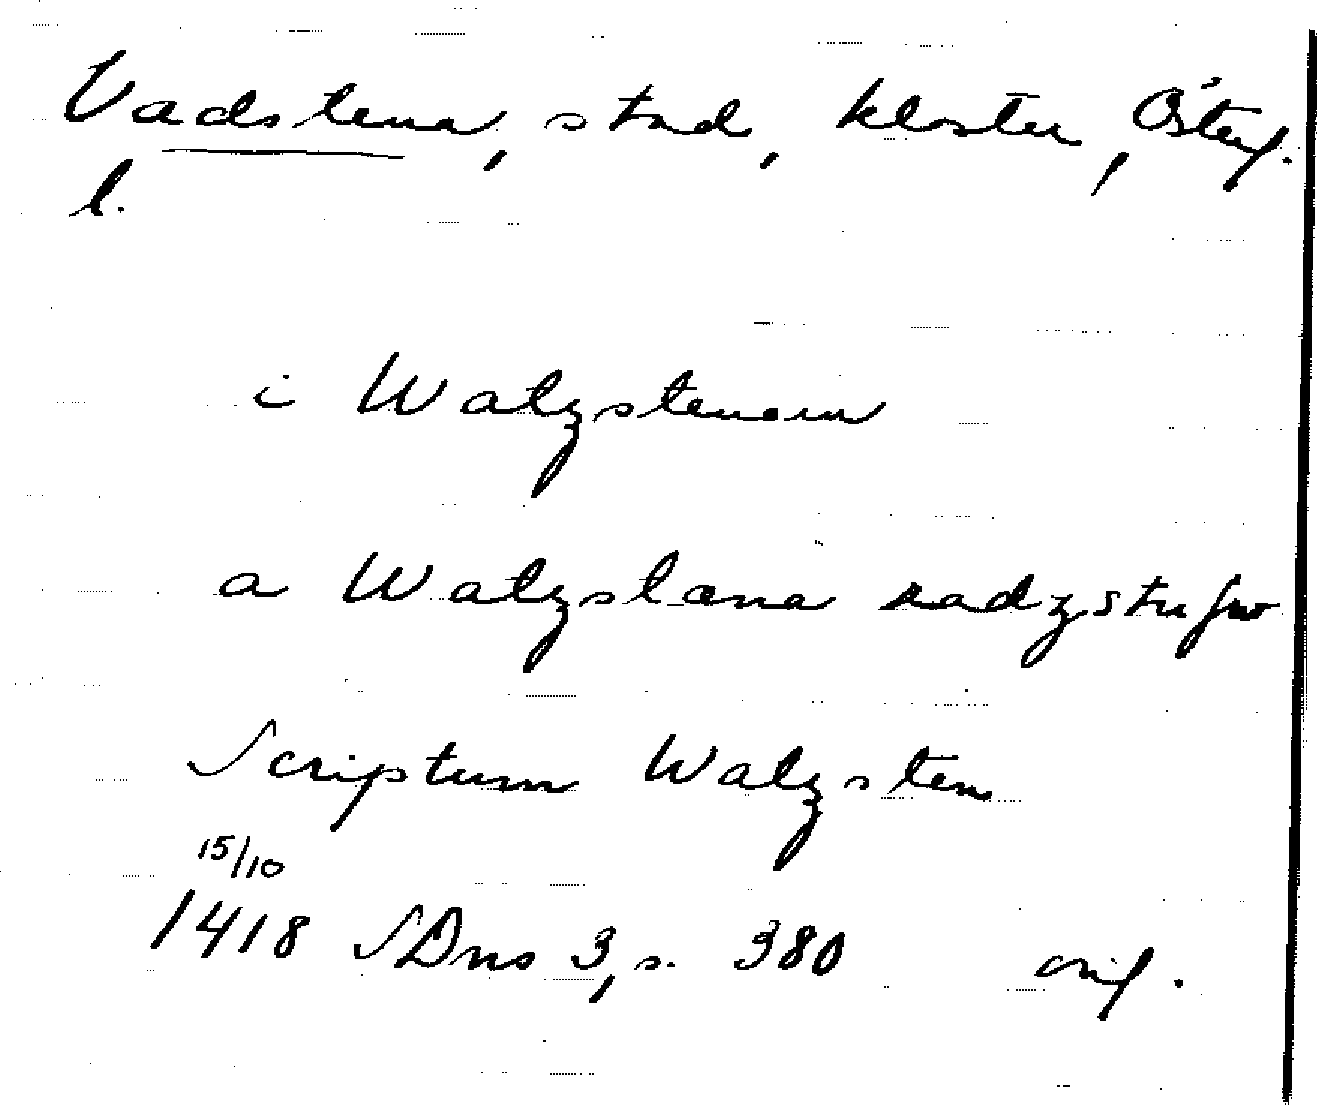 Vadstena, stad, kloster, Österg.
l.
i Watzstenom
a Watzstena radzstufw
Scriptum Watzsten
15/10
1418 SDns 3, s. 380 orig.